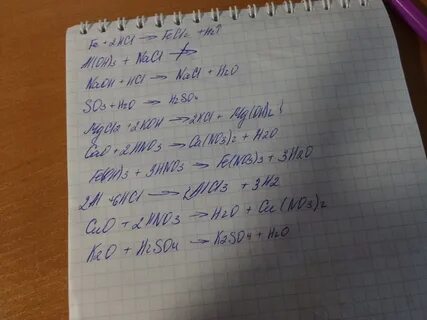 Fe + 2HCl → FeCl2 + H2↑
Al(OH)3 + NaCl ↛
NaOH + HCl → NaCl + H2O
SO3 + H2O → H2SO4
MgCl2 + 2KOH → 2KCl + Mg(OH)2↓
CaO + 2HNO3 → Ca(NO3)2 + H2O
Fe(OH)3 + 3HNO3 → Fe(NO3)3 + 3H2O
2Al + 6HCl → 2AlCl3 + 3H2
CuO + 2HNO3 → H2O + Cu(NO3)2
K2O + H2SO4 → K2SO4 + H2O